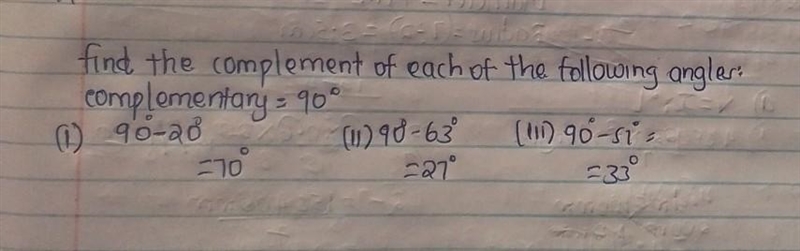 find the complement of each of the following angles:
complementary = 90°
(i) 90° - 20° (ii) 90° - 63° (iii) 90° - 57° =
= 70° = 27° = 33°